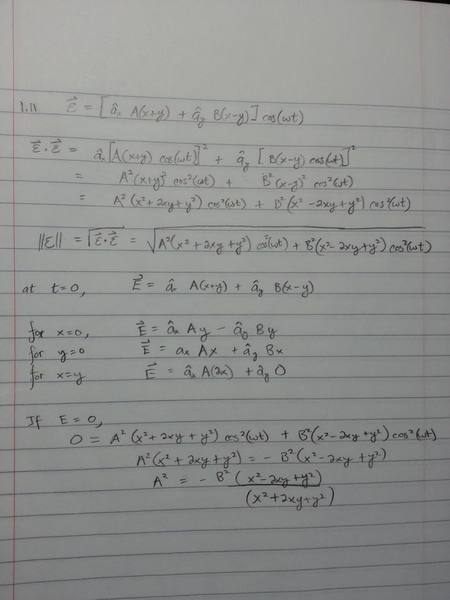 1.11 ℰ⃗ = [ âₓ A(x+y) + â_y B(x-y) ] cos(ωt)
ℰ⃗ · ℰ⃗ = âₓ [A(x+y) cos(ωt)]² + â_y [B(x-y) cos(ωt)]²
= A²(x+y)² cos²(ωt) + B²(x-y)² cos²(ωt)
= A²(x²+2xy+y²) cos²(ωt) + B²(x²-2xy+y²) cos²(ωt)
||ℰ|| = √(ℰ⃗·ℰ⃗) = √(A²(x²+2xy+y²) cos²(ωt) + B²(x²-2xy+y²) cos²(ωt))
at t=0, E⃗ = âₓ A(x+y) + â_y B(x-y)
for x=0, E⃗ = âₓ Ay - â_y By
for y=0 E⃗ = aₓ Ax + â_y Bx
for x=y E⃗ = âₓ A(2x) + â_y 0
If E=0,
0 = A²(x²+2xy+y²) cos²(ωt) + B²(x²-2xy+y²) cos²(ωt)
A²(x²+2xy+y²) = - B²(x²-2xy+y²)
A² = - B² (x²-2xy+y²)
(x²+2xy+y²)